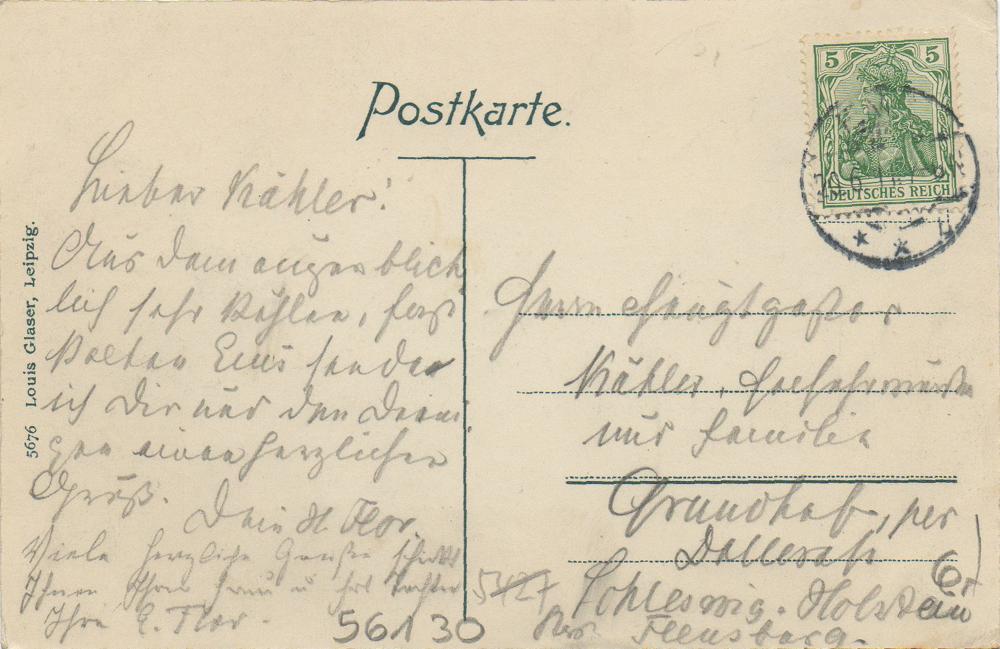 Postkarte.
5
5
DEUTSCHES REICH
Lieber Kähler!
Aus dem augenblick
lich sehr kühlen, fast
kalten Ems sende
ich Dir und den Deini
gen einen herzlichen
Gruß.
Dein H. Flor.
Viele herzliche Grüße schickt
Ihnen Ihrer Frau u
Ihre E. Flor.
Herrn
Kähler,
und Familie
Grundhof, per
Schleswig-Holstein
Flensburg.
5427
56130
5676 Louis Glaser, Leipzig.